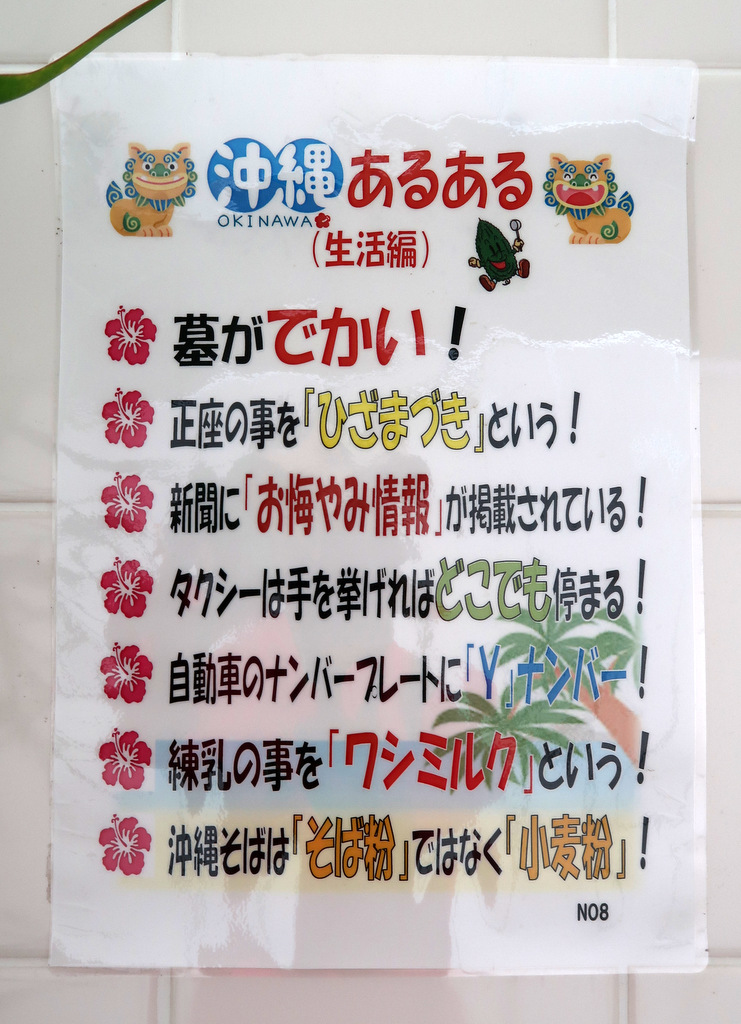 沖縄あるある
OKINAWA
(生活編)
墓がでかい!
正座の事を「ひざまづき」という!
新聞に「お悔やみ情報」が掲載されている!
タクシーは手を挙げればどこでも停まる!
自動車のナンバープレートに「Y」ナンバー!
練乳の事を「ワシミルク」という!
沖縄そばは「そば粉」ではなく「小麦粉」!
NO8